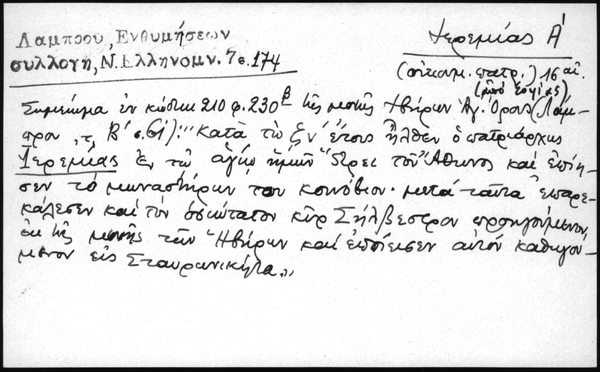 Λαμπρου, Ενθυμήσεων
συλλογή, Ν. Ελληνομν. 7 σ. 174
Ιερεμίας Α'
(οἰκουμ. πατρ.) 16 αἰ.
(ἀπὸ Σοφίας)
Σημείωμα ἐν κώδικι 210 φ. 230β τῆς μονῆς Ἰβήρων Ἁγ. Ὄρους (Λάμ-
πρου, τ. Β' σ. 61): "Κατὰ τὸ ζν' ἔτους ἦλθεν ὁ πατριάρχης
Ἱερεμίας ἐν τῷ ἁγίῳ ἡμῶν Ὄρει τοῦ Ἄθωνος καὶ ἐποίη-
σεν τὸ μοναστήριον του κοινόβιον· μετὰ ταῦτα ἐπαρε-
κάλεσεν καὶ τὸν ὁσιώτατον κῦρ Σίλβεστρον προηγούμενον
ἐκ τῆς μονῆς τῶν Ἰβήρων καὶ ἐποίεισεν αὐτὸν καθηγού-
μενον εἰς Σταυρονικήτα."